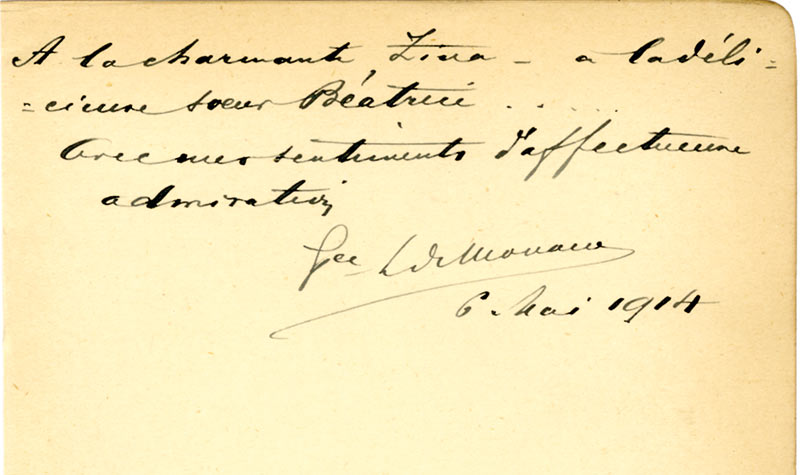 A la charmante Zina - a la déli=
=cieuse soeur Béatrice . . . . .
Avec mes sentiments d'affectueuse
admiration
de Monaco
6. Mai 1914